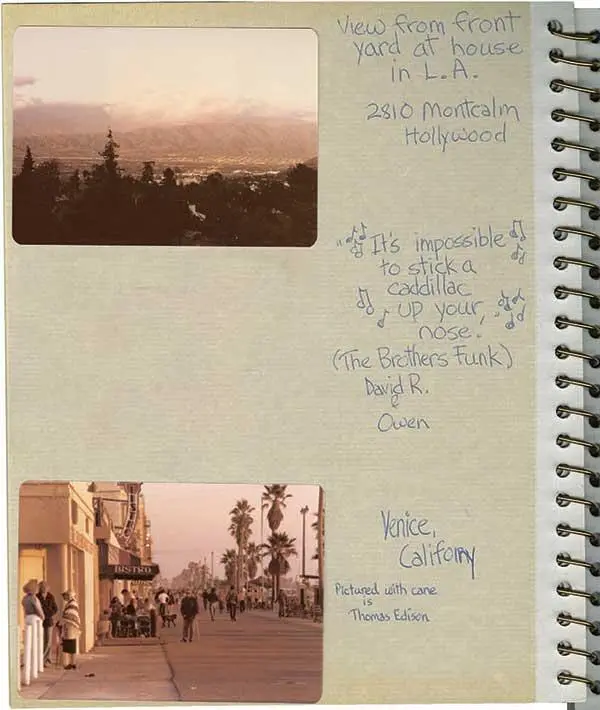 View from front
yard at house
in L.A.
2810 Montcalm
Hollywood
"It's impossible
to stick a
caddillac
up your,"
nose.
(The Brothers Funk)
David R.
&
Owen
BISTRO
Venice,
Califony
Pictured with cane
is
Thomas Edison